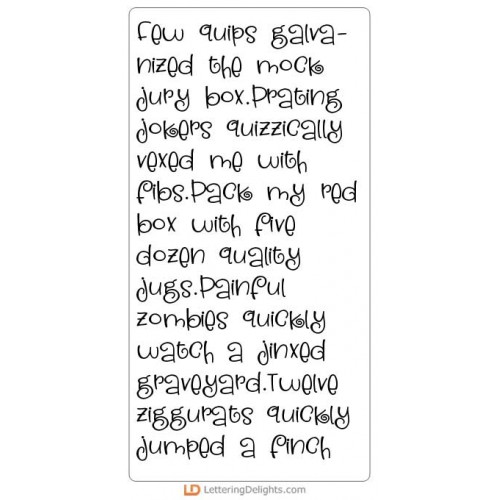 Few quips galva-
nized the mock
jury box.Prating
jokers quizzically
vexed me with
fibs.Pack my red
box with five
dozen quality
jugs.Painful
zombies quickly
watch a jinxed
graveyard.Twelve
ziggurats quickly
jumped a finch
LD LetteringDelights.com